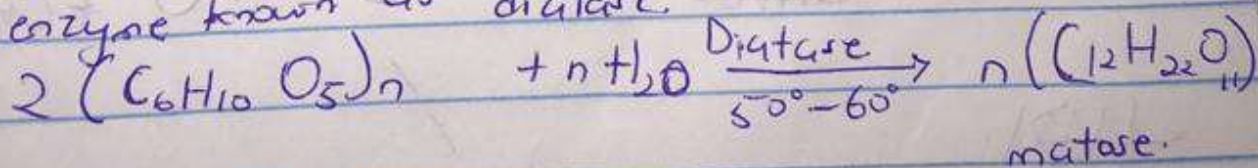 enzyme known as diatase.
2 (C₆H₁₀ O₅)n + nH₂O Diatase → n(C₁₂H₂₂O₁₁)
50°-60°
matose.